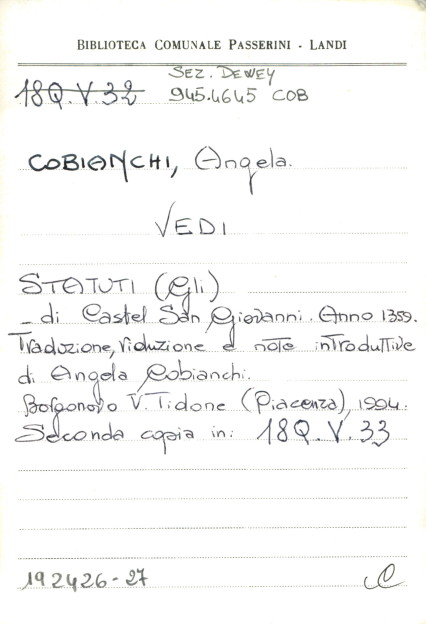 BIBLIOTECA COMUNALE PASSERINI - LANDI
SEZ. DEWEY
18Q.V.32 945.4645 COB
COBIANCHI, Angela.
VEDI
STATUTI (Gli)
- di Castel San Giovanni. Anno 1359.
Traduzione, riduzione e note introduttive
di Angela Cobianchi.
Borgonovo V. Tidone (Piacenza), 1994.
Seconda copia in: 18Q.V.33
192426-27